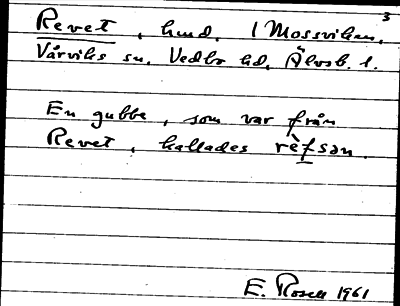 3
Revet, hmd. i Mossviken,
Vårviks sn. Vedbo hd, Älvsb. l.
En gubbe, som var från
Revet, kallades rèfsən.
E. Rosell 1961